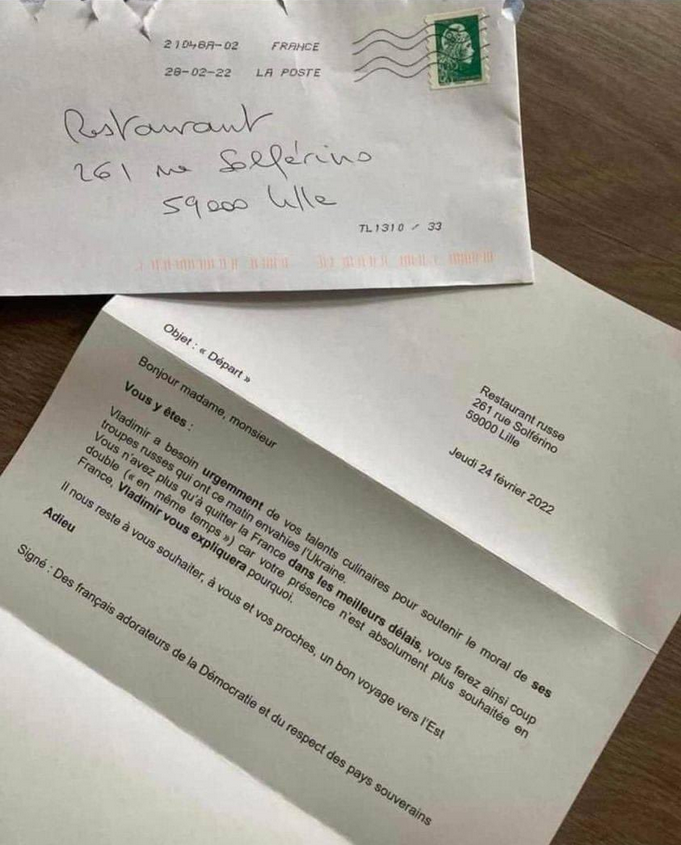 21048A-02 FRANCE
28-02-22 LA POSTE
Restaurant
261 rue Solférino
59000 Lille
TL1310 / 33
Restaurant russe
261 rue Solférino
59000 Lille
Jeudi 24 février 2022
Objet : « Départ »
Bonjour madame, monsieur
Vous y êtes :
Vladimir a besoin urgemment de vos talents culinaires pour soutenir le moral de ses
troupes russes qui ont ce matin envahies l'Ukraine.
Vous n'avez plus qu'à quitter la France dans les meilleurs délais, vous ferez ainsi coup
double (« en même temps ») car votre présence n'est absolument plus souhaitée en
France, Vladimir vous expliquera pourquoi.
Il nous reste à vous souhaiter, à vous et vos proches, un bon voyage vers l'Est
Adieu
Signé : Des français adorateurs de la Démocratie et du respect des pays souverains